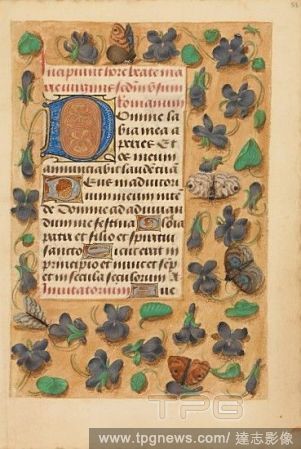 Incipiunt hore beate ma
rie virginis secundum usum
Romanum
Domine la
bia mea a
peries Et
os meum
annuntiabit laudem tuam
Deus in adiutori
um meum inten
de Domine ad adiuuan
dum me festina Glo
ria patri et filio et spiritui
sancto Sicut erat in
principio et nunc et semp
et in secula seculorum
Invitatorium Aue
TPG
www.tpgnews.com/達志影像